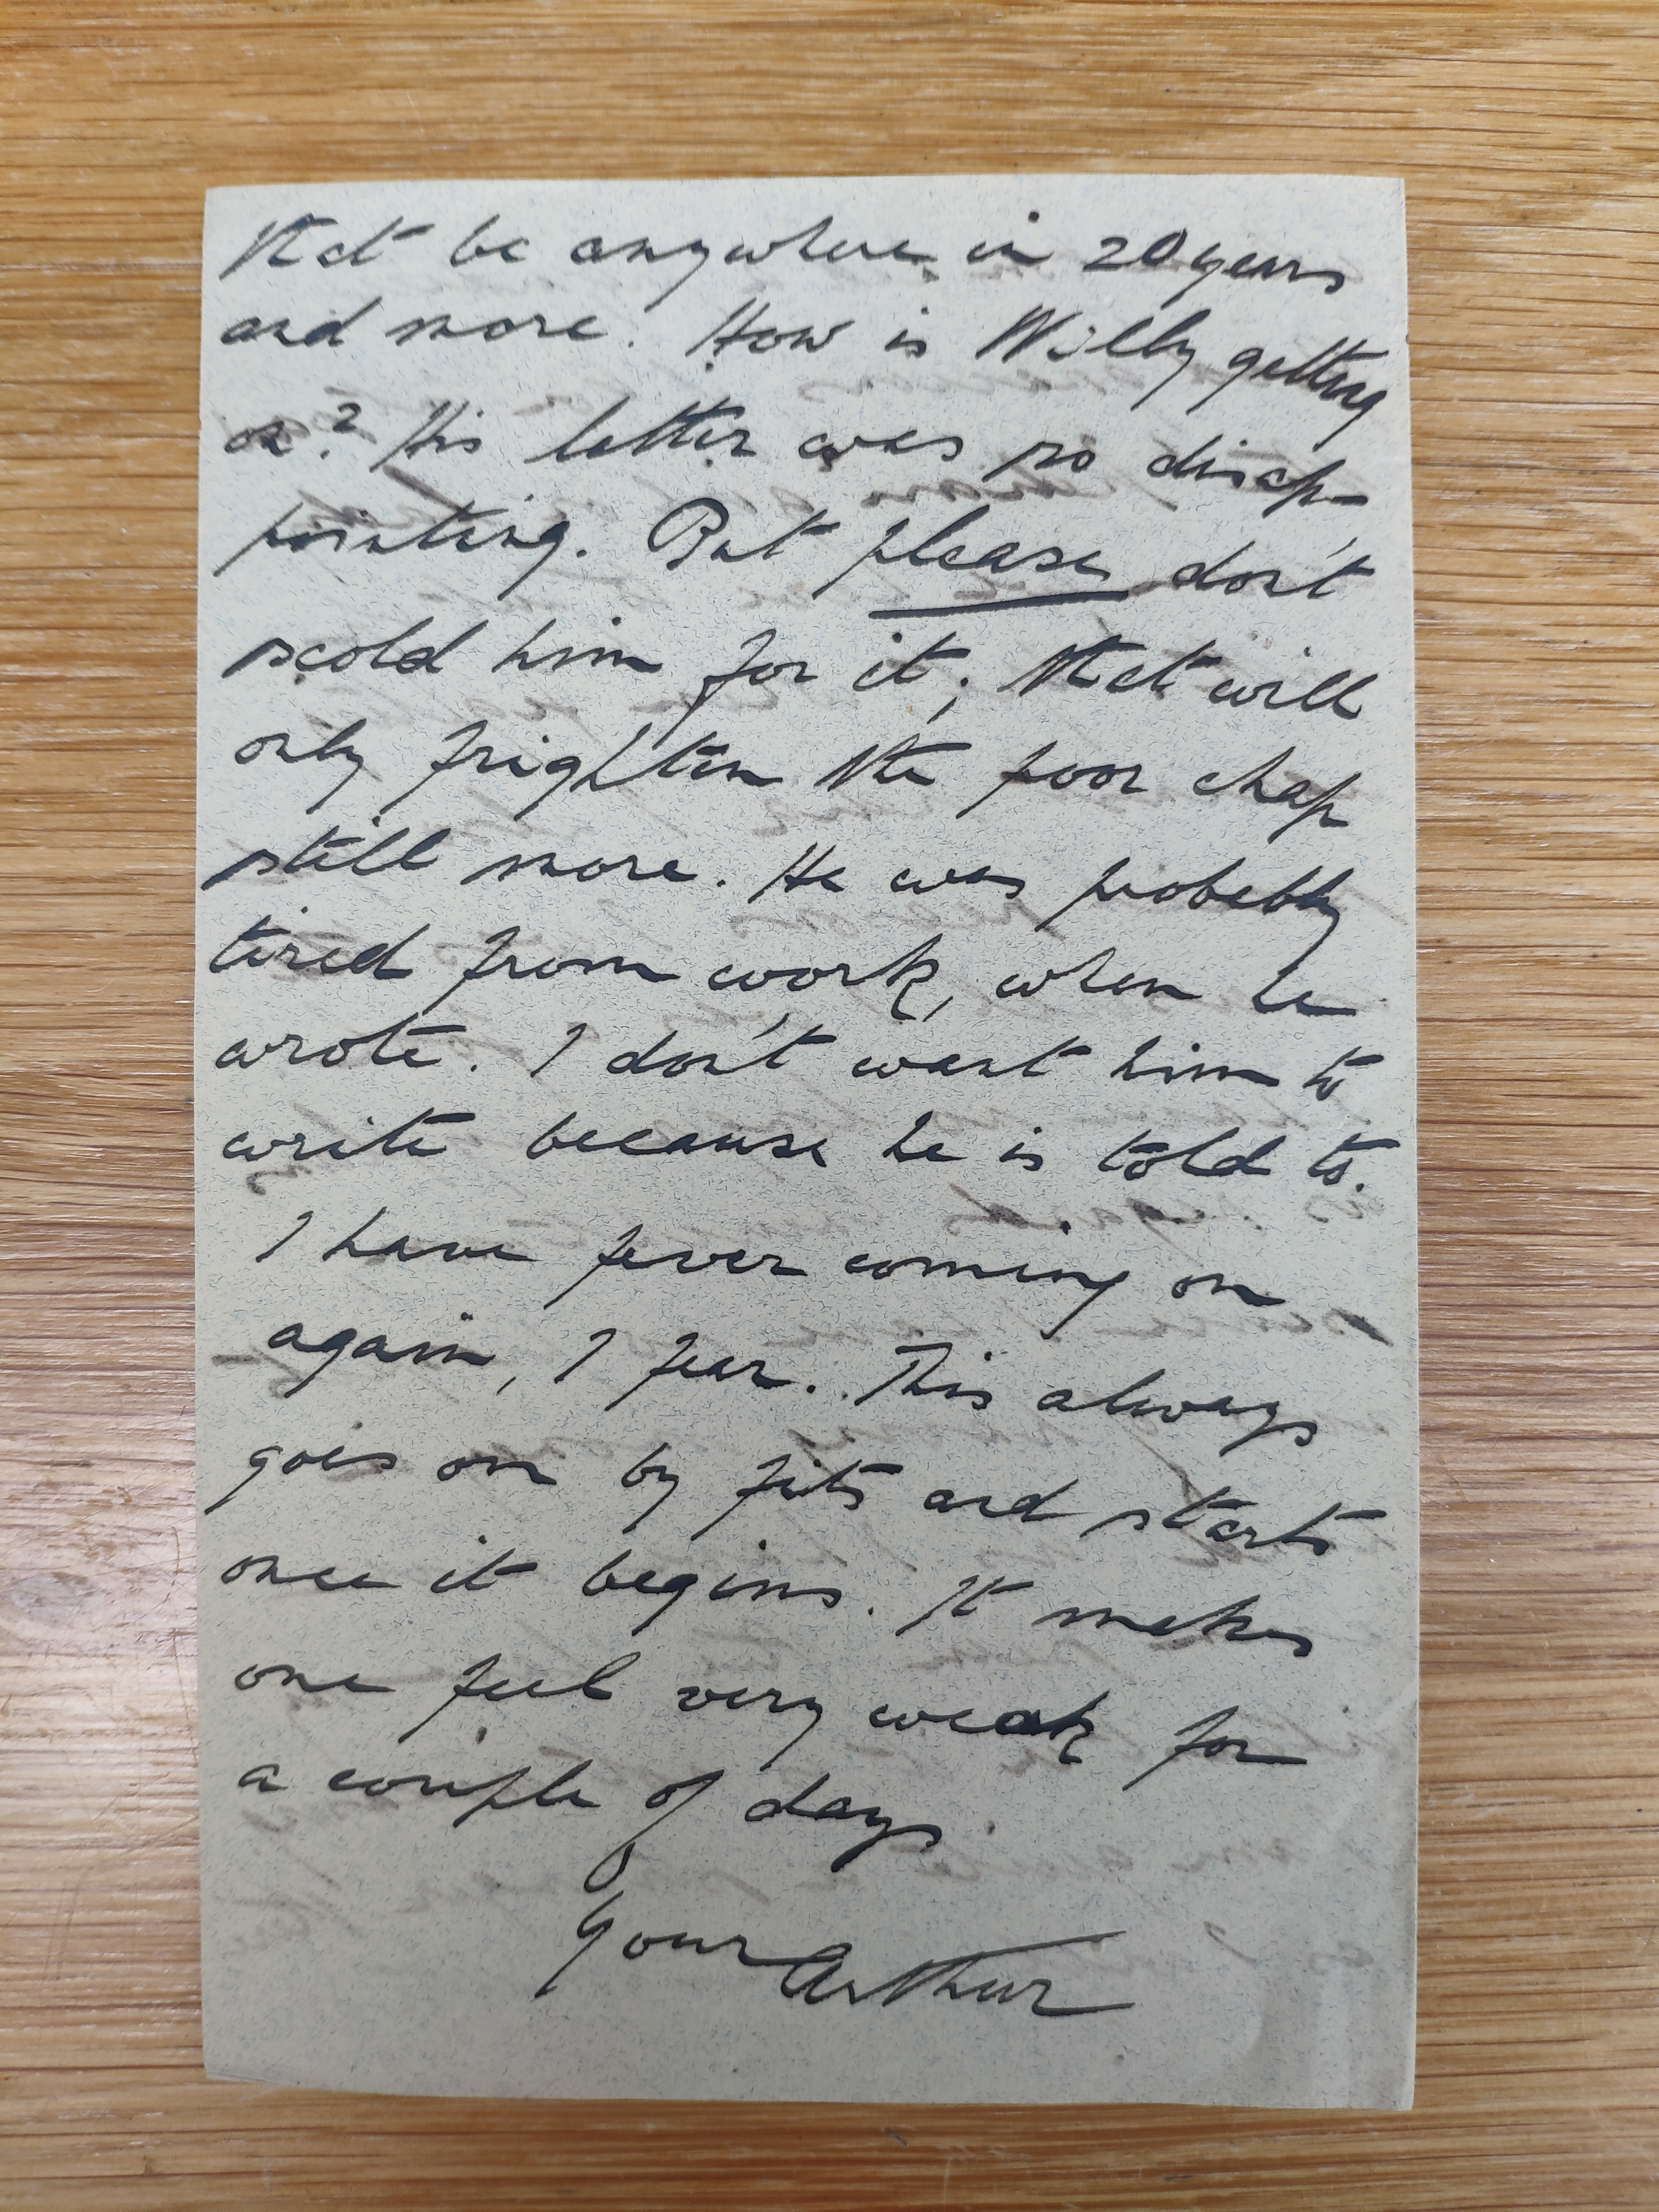 that be anywhere in 20 years
and more. How is Willy getting
on? His letter was so disap-
pointing. But please don't
scold him for it; that will
only frighten the poor chap
still more. He was probably
tired from work, when he
wrote. I don't want him to
write because he is told to.
I have fever coming on
again, I fear. This always
goes on by fits and starts
once it begins. It makes
one feel very weak for
a couple of days.
Your Arthur